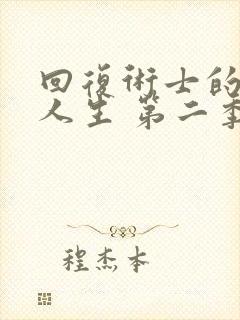 回復術士的
人生 第二季
程杰本